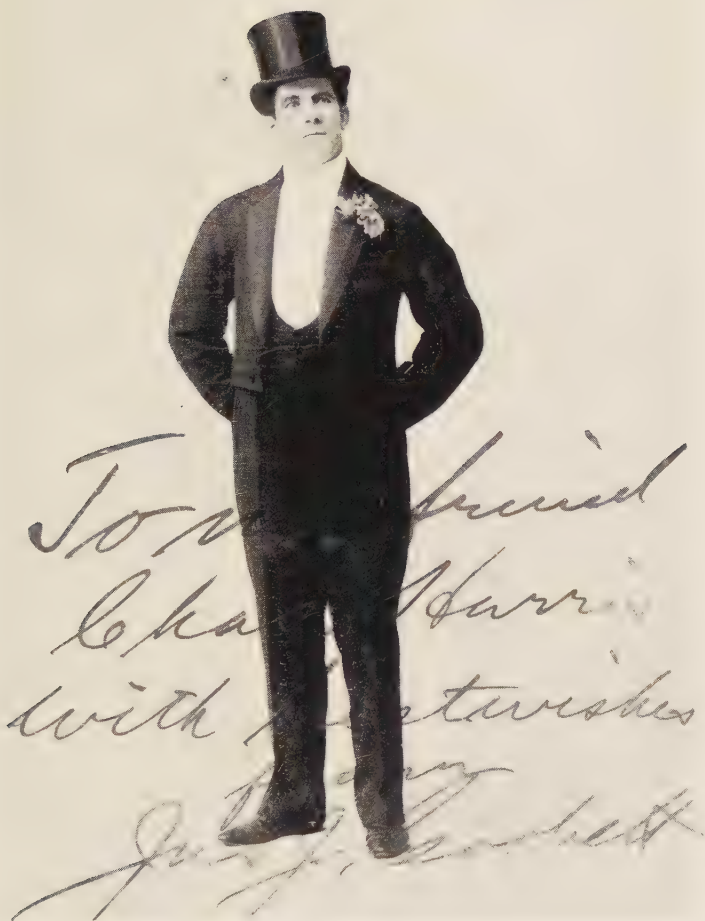 To m friend
Cha Harri
with estwishes
from
Jas. J. Corbett